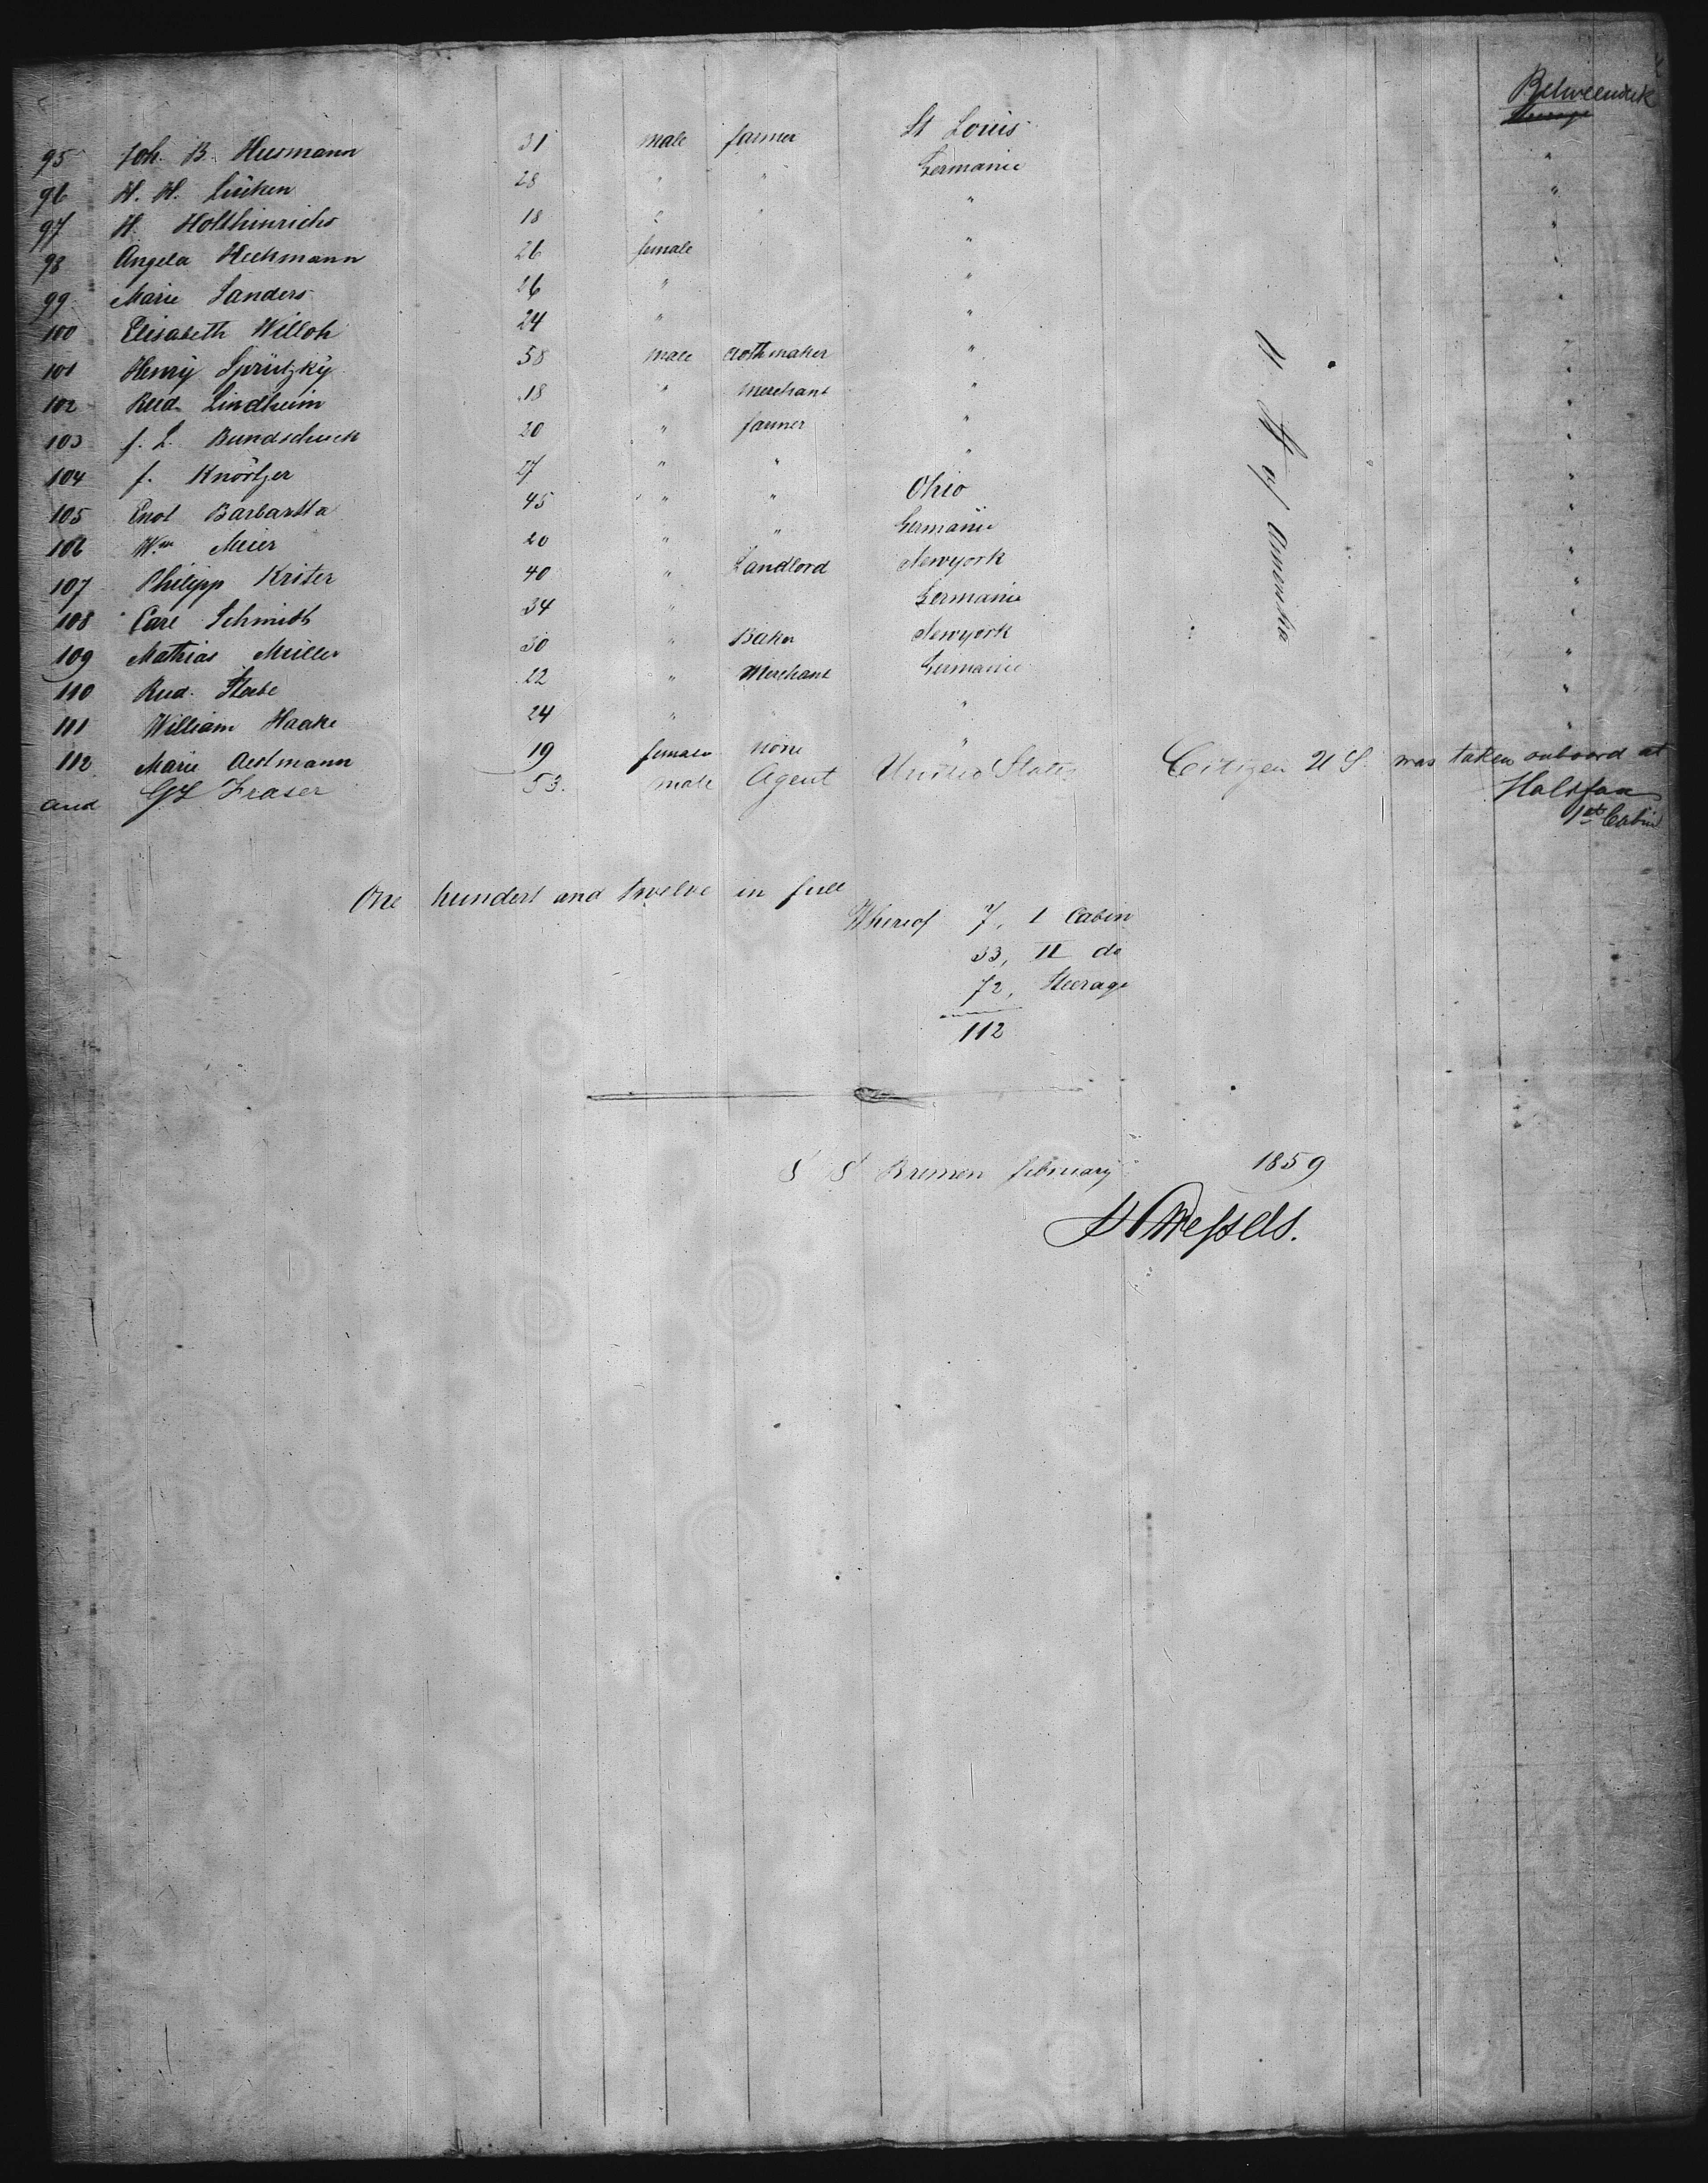 Betweendek
Steerage
95 Joh. B. Husmann 31 male farmer St Louis "
96 H. H. Lücken 28 " " Germanie "
97 H. Holthinrichs 18 " " " "
98 Angela Heckmann 26 female " "
99 Marie Sanders 26 " " "
100 Elisabeth Willoh 24 " "
101 Henry Sprützky 58 male clothmaker " "
102 Rud. Lindheim 18 " Merchant " "
103 f. L. Bundschuch 20 " farmer " "
104 f. Knörtzer 27 " " " "
105 Enot Barbartta 45 " " Ohio "
106 Wm Meier 20 " " Germanie "
107 Philipp Krister 40 " Landlord Newyork "
108 Carl Schmidt 34 " Germanie "
109 Mathias Müller 30 " Baker Newyork "
110 Rud. Stabe 22 " Merchant Germanie "
111 William Haake 24 " " " "
112 Marie Aestmann 19 female none "
U. St. of Amerika
and G L Fraser 53. male Agent United States Citizen U S. was taken onboord at
Halifax
1st Cabin
One hundert and twelve in full
Whereof 7, I Cabin
33, II do
72, Steerage
112
S S Bremen february 1859
H Wessels.